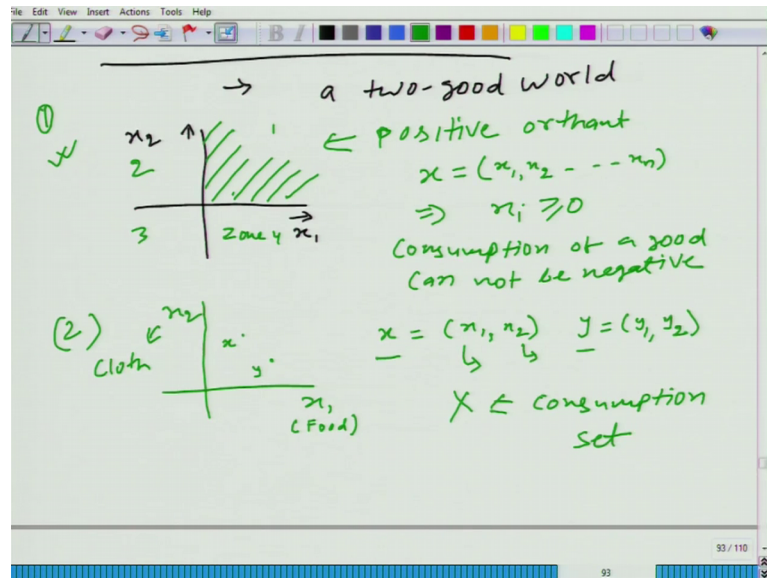 File Edit View Insert Actions Tools Help
B I
→ a two-good world
① x2 ↑ 1 ← positive orthant
2
x = (x1, x2 - - - xn)
⇒ xi ≥ 0
3 Zone 4 x1
Consumption of a good
can not be negative
(2) x2
Cloth
x y
x1
(Food)
x = (x1, x2) y = (y1, y2)
X ← consumption
set
93 / 110
93